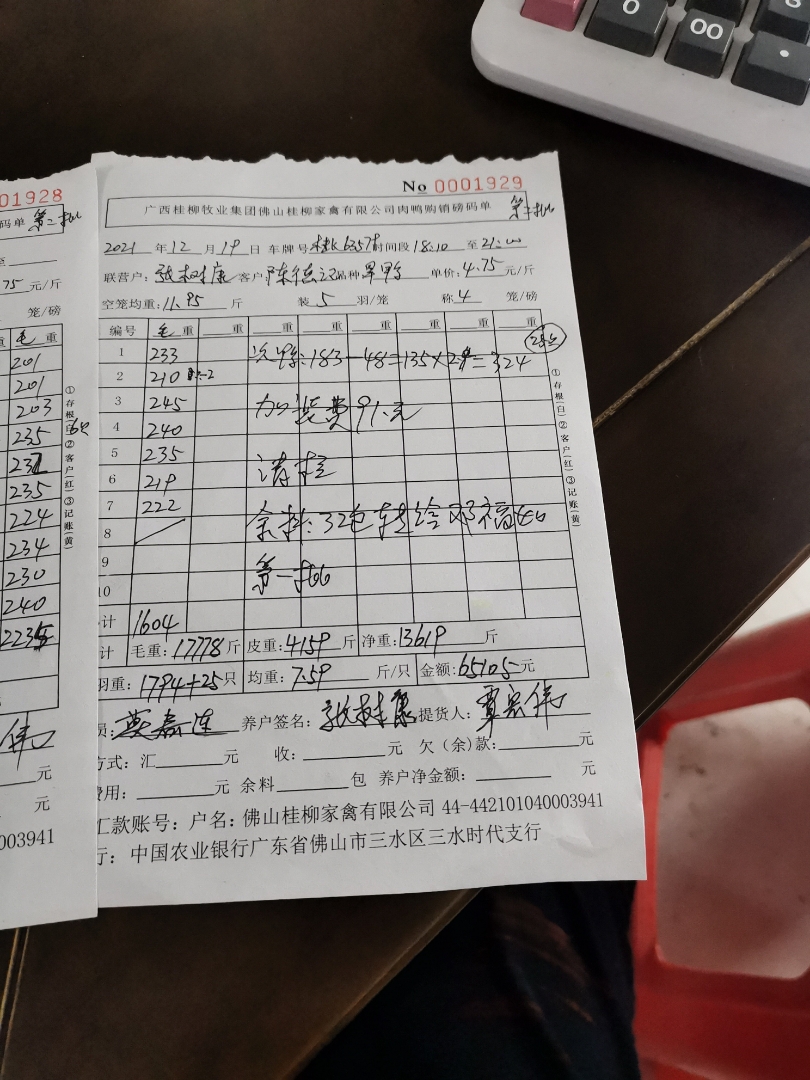 01928
码单 第二批
至
75 元/斤
笼/磅
重 毛 重
201
201
203
235
232
235
224
234
230
240
2235
①存根(白)②客户(红)③记账(黄)
元
元
0003941
No 0001929
广西桂柳牧业集团佛山桂柳家禽有限公司肉鸭购销磅码单
2021 年 12 月 19 日 车牌号 时间段 18:10 至 21:00
联营户: 张树康 客户 陈德 品种 单价: 4.75 元/斤
空笼均重: 11.95 斤 装 5 羽/笼 称 4 笼/磅
编号 毛 重 重 重 重 重 重 重
1 233 次鸭:183-48=135×2.4=324
2 210 -2
3 245 加装费91.元
4 240
5 235 清栏
6 219
7 222 余料:32包转给邓福
8
9 第一批
10
计 1604
计 毛重: 17778 斤 皮重: 4159 斤 净重: 13619 斤
羽重: 1794+25 只 均重: 7.59 斤/只 金额: 65105 元
员: 养户签名: 张树康 提货人: 覃宏伟
方式: 汇 元 收: 元 欠(余)款: 元
费用: 元 余料 包 养户净金额: 元
汇款账号: 户名: 佛山桂柳家禽有限公司 44-442101040003941
行: 中国农业银行广东省佛山市三水区三水时代支行
①存根(白)②客户(红)③记账(黄)
0
00
.